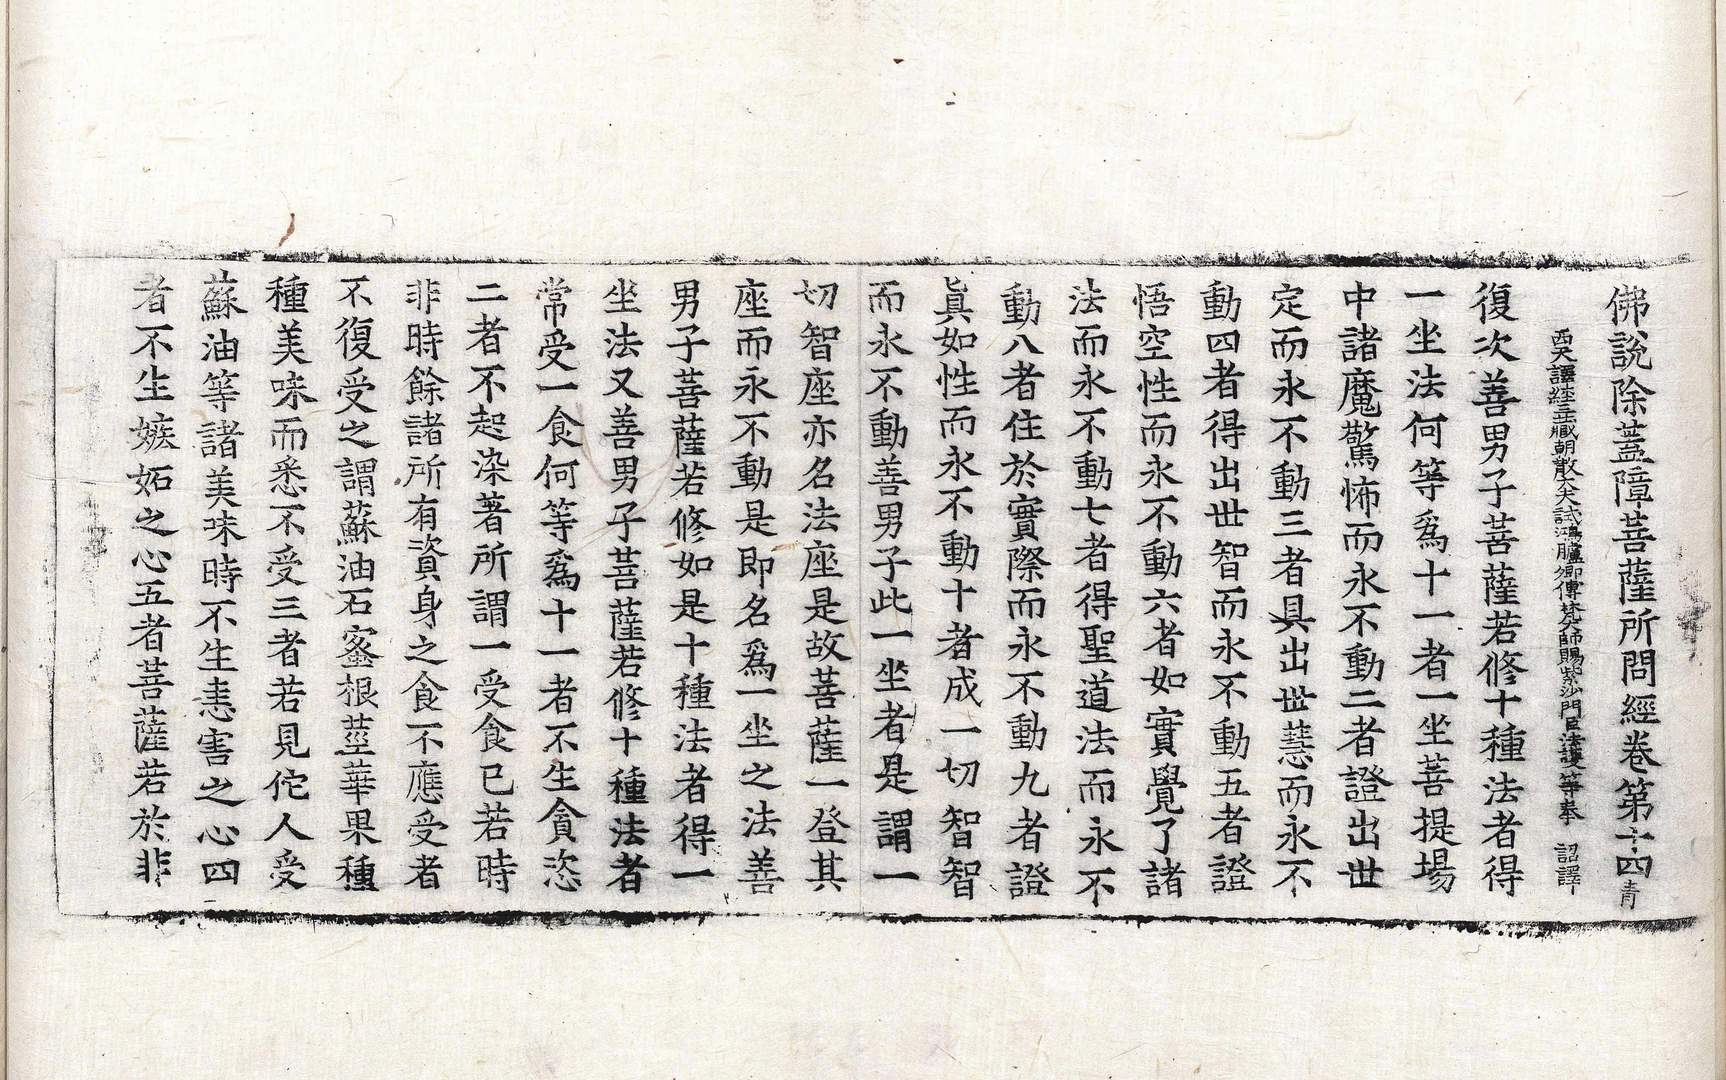 佛說除蓋障菩薩所問經卷第十四 青
西天譯經三藏朝散大夫試鴻臚卿傳梵大師賜紫沙門臣法護等奉 詔譯
復次善男子菩薩若修十種法者得
一坐法何等爲十一者一坐菩提場
中諸魔驚怖而永不動二者證出世
定而永不動三者具出世慧而永不
動四者得出世智而永不動五者證
悟空性而永不動六者如實覺了諸
法而永不動七者得聖道法而永不
動八者住於實際而永不動九者證
眞如性而永不動十者成一切智智
而永不動善男子此一坐者是謂一
切智座亦名法座是故菩薩一登其
座而永不動是即名爲一坐之法善
男子菩薩若修如是十種法者得一
坐法又善男子菩薩若修十種法者
常受一食何等爲十一者不生貪恣
二者不起染著所謂一受食已若時
非時餘諸所有資身之食不應受者
不復受之謂蘇油石蜜根莖華果種
種美味而悉不受三者若見佗人受
蘇油等諸美味時不生恚害之心四
者不生嫉妬之心五者菩薩若於非